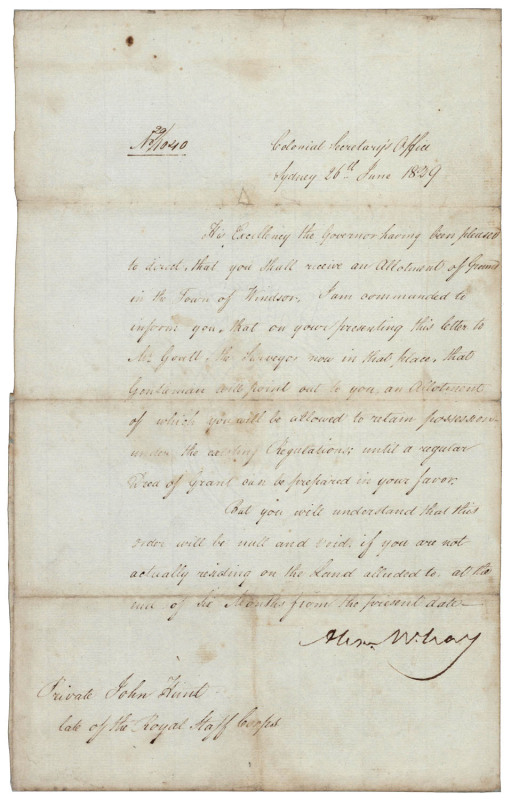 No 29/1040
Colonial Secretary's Office
Sydney 26th June 1829
His Excellency the Governor having been pleased
to direct, that you shall receive an Allotment of Ground
in the Town of Windsor, I am commanded to
inform you, that on your presenting this letter to
Mr the Surveyor now in that place, that
Gentleman will point out to you an Allotment
of which you will be allowed to retain possession
under the existing Regulations; until a regular
Deed of Grant can be prepared in your favor.
But you will understand that this
order will be null and void, if you are not
actually residing on the Land alluded to, at the
end of Six Months from the present date
Alexr McLeay
Private John Hunt
late of the Royal Staff Corps